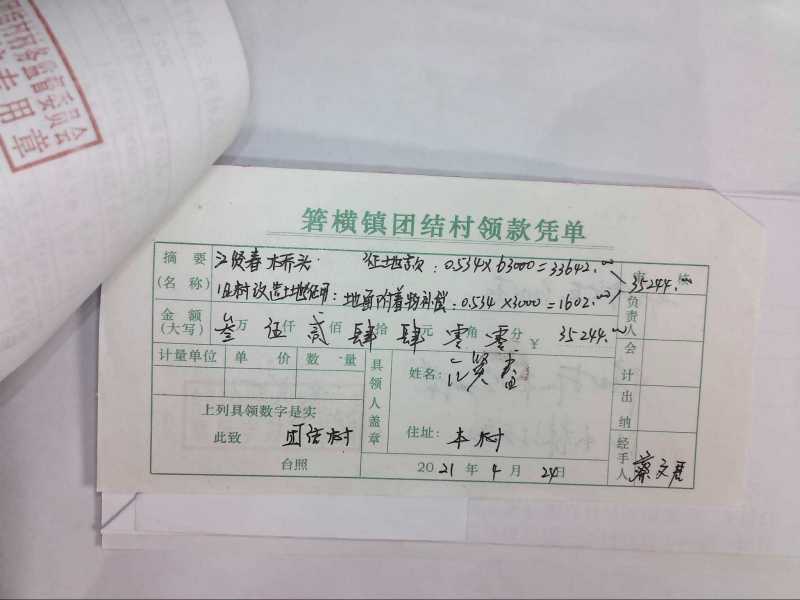 村务监督委员会
专用章
箬横镇团结村领款凭单
摘要 江贤春 桥头 征地款:0.534×63000=33642.00
(名称) 旧村改造土地征用:地面附着物补偿:0.534×3000=1602.00 35244.00
金额
(大写) 叁万伍仟贰佰肆拾肆元零角零分 ¥ 35244.00
负责人
计量单位 单价 数量
会计
具领人盖章
姓名:江贤春
上列具领数字是实
出纳
此致 团结村
住址:本村
台照
2021年4月24日
经手人 蔡文君